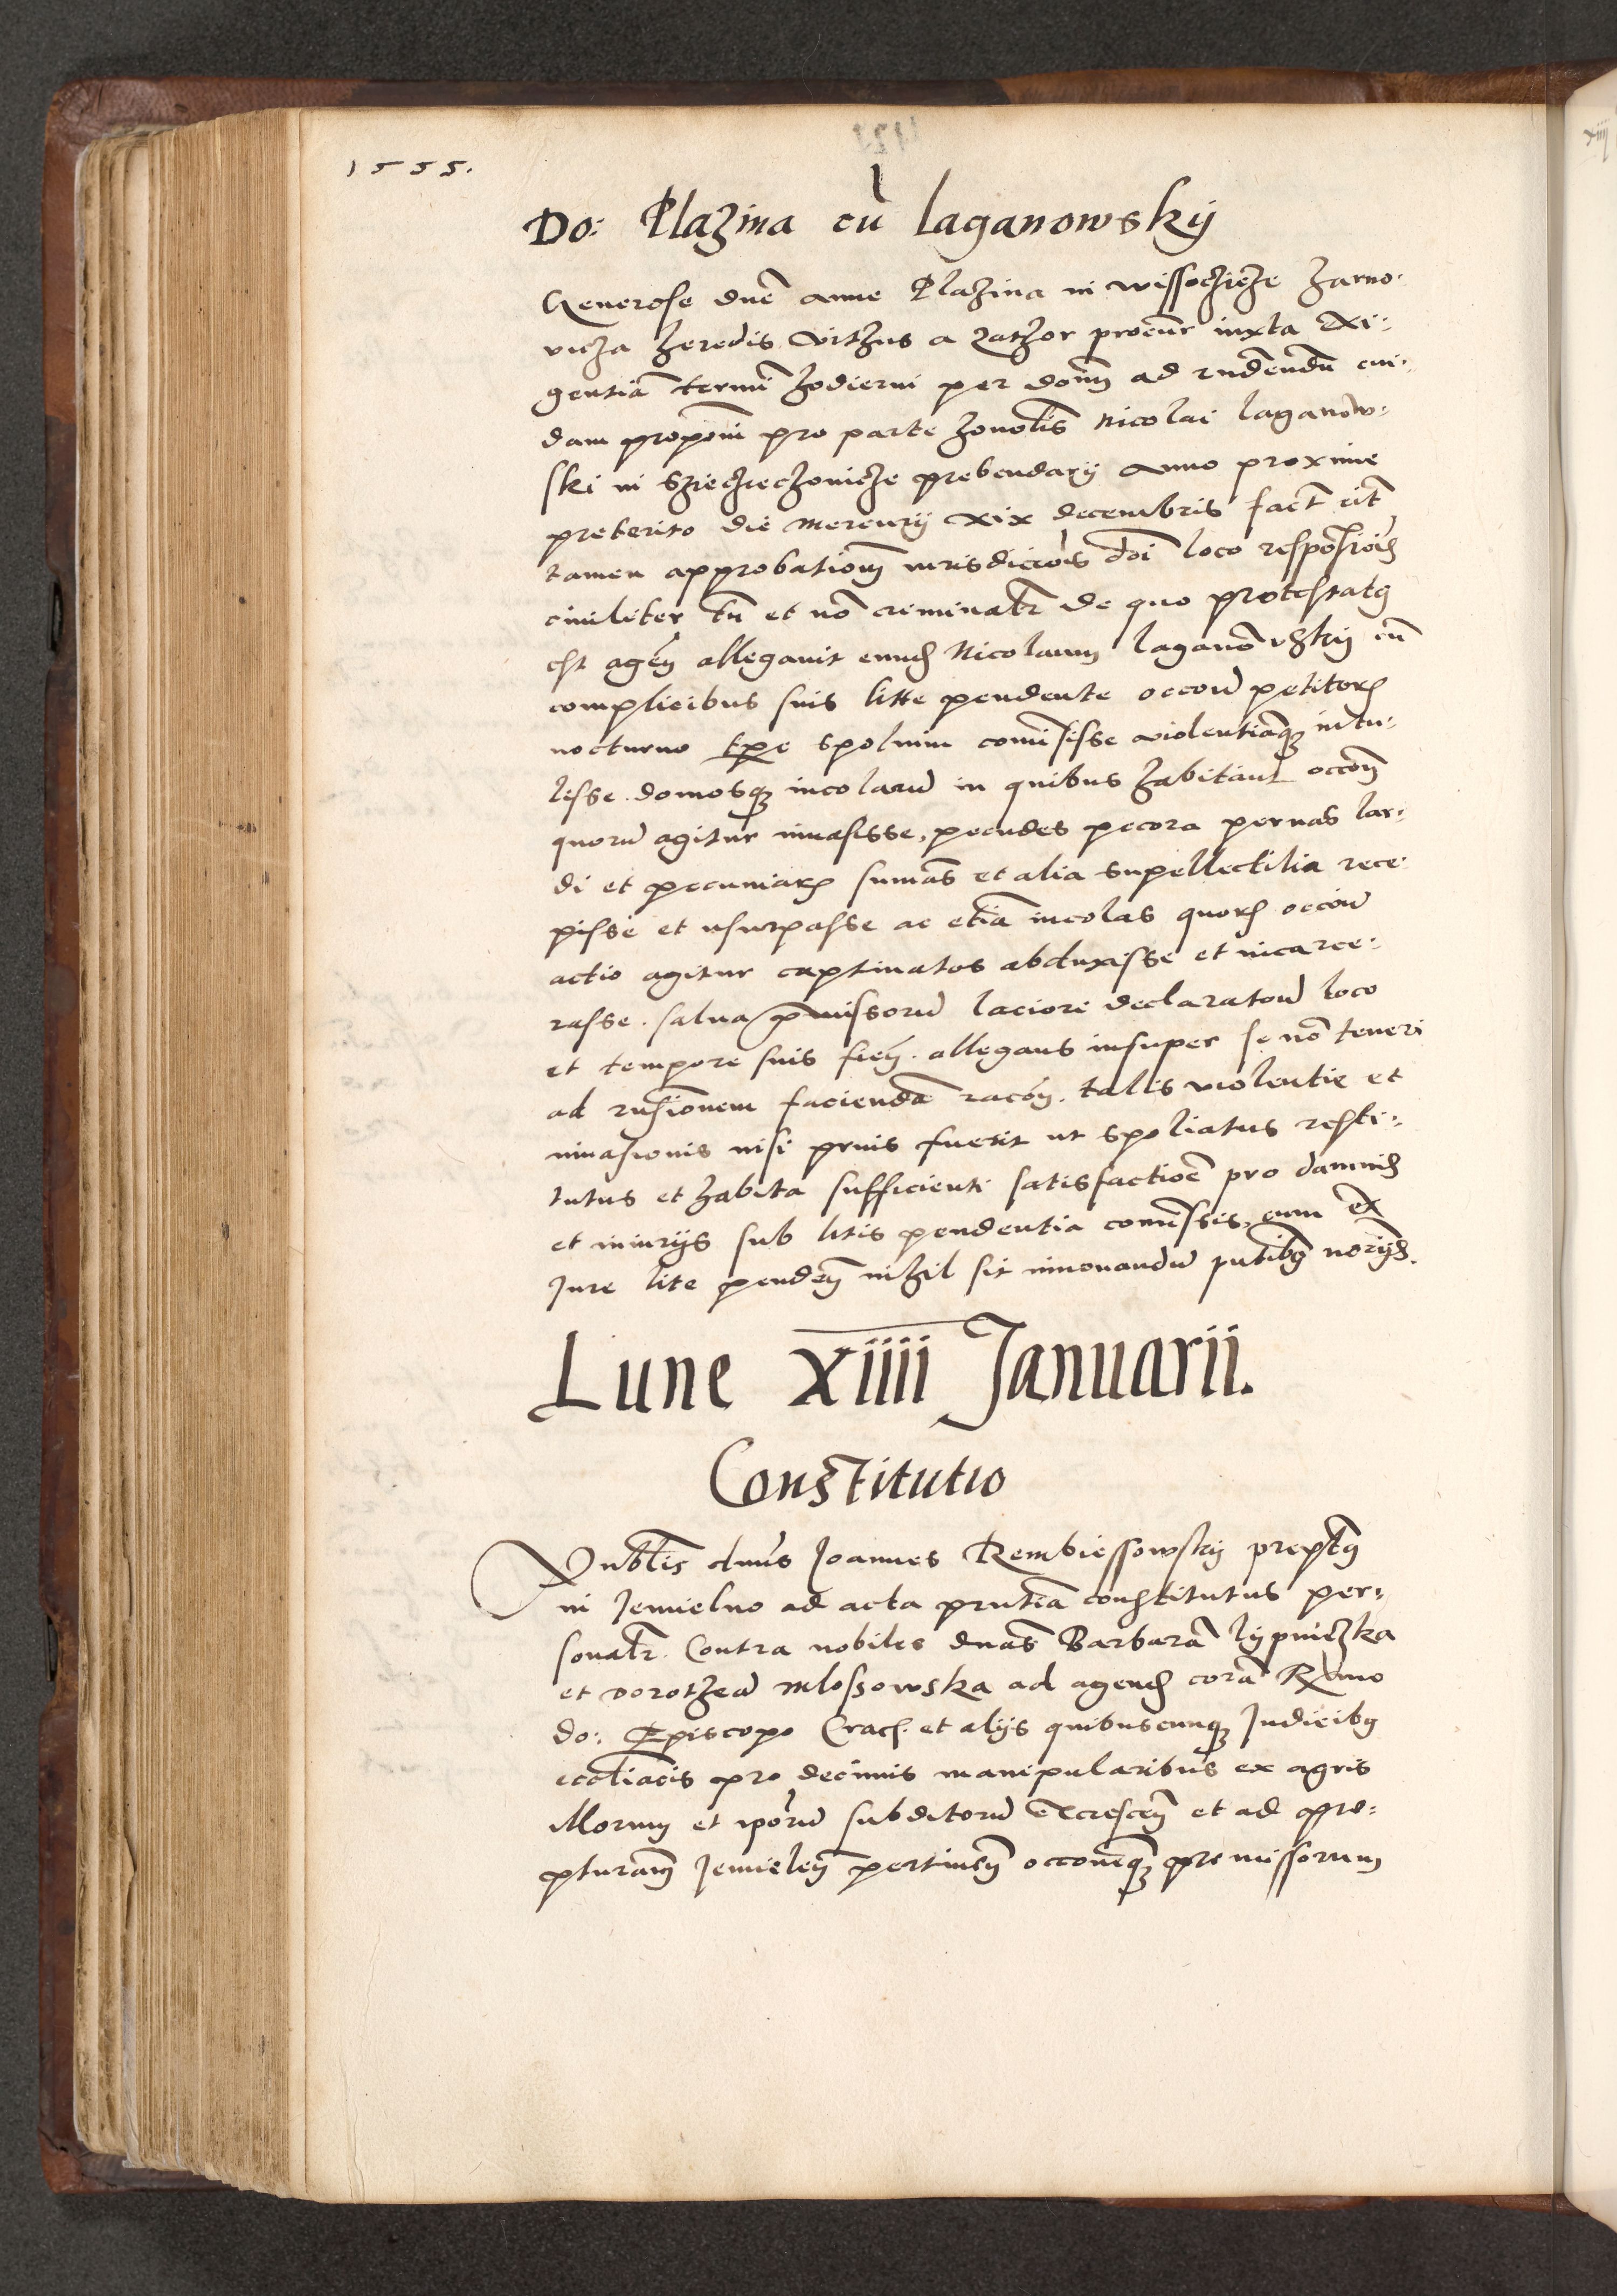 1555.
Do: Plazina cū Laganowskÿ
Generose dnē Anne Plazina in Wissoczicze Zarno-
vicza heredis Vithus a Zathor procūr iuxta exi-
gentiā termī hodierni per doīm ad rndēndū cui-
dam proponi pro parte honolīs Nicolai Laganow-
ski in Sziecziechonicze prebendarÿ Anno proxime
preterito die Mercurÿ xix decembris fact cīt
tamen approbationem iurisdictiōis doī loco responsiōis
ciuiliter tn̄ et nō criminalr̄ de quo protestatꝯ
est agēn allegauit eund Nicolaum Laganowskÿ cū
complicibus suis litte pendente occoīū petitorꝝ
nocturno tp̄e spolium comīsisse violentiāqꝫ intu-
lisse domosqꝫ incolarū in quibus habitānt occōn
quorū agitur inuasisse, pecudes pecora pernas lar-
di et pecuniarꝝ sumās et alia supellectilia rece-
pisse et usurpasse ac etiā incolas quorꝝ occōū
actio agitur captiuatos abduxisse et incarce-
rasse. salua p̄missorū laciori declaratoīū loco
et tempore suis fieñ. allegans insuper se nō teneri
ad rnsionem faciendā racōn. talis violentie et
inuasionis nisi prius fuerit ut spoliatus resti-
tutus et habita sufficienti satisfactiōe pro damnis
et iniurÿs sub litis pendentia comīssis, cum ex
Jure lite pendēn nihil sit innouandū pn̄tibꝯ norÿs.
Lune xiiii Januarii.
Constitutio
Vnblīs dnūs Joannes Rembiessowskÿ prept̄ꝯ
in Jemielno ad acta pn̄tiā constitutus per-
sonalr̄. Contra nobiles dnās Barbarā Lÿpniczka
et Dorotheā Mlossowska ad agend corā Rx̄mo
do: Episcopo Crac. et alÿs quibuscunqꝫ Judicibꝯ
eccliacīs pro decimis manipularibus ex agris
illorum et ipōrū subditorū excrescēn et ad pre-
pturām Jemieleñ pertineñ occonēqꝫ premissorum